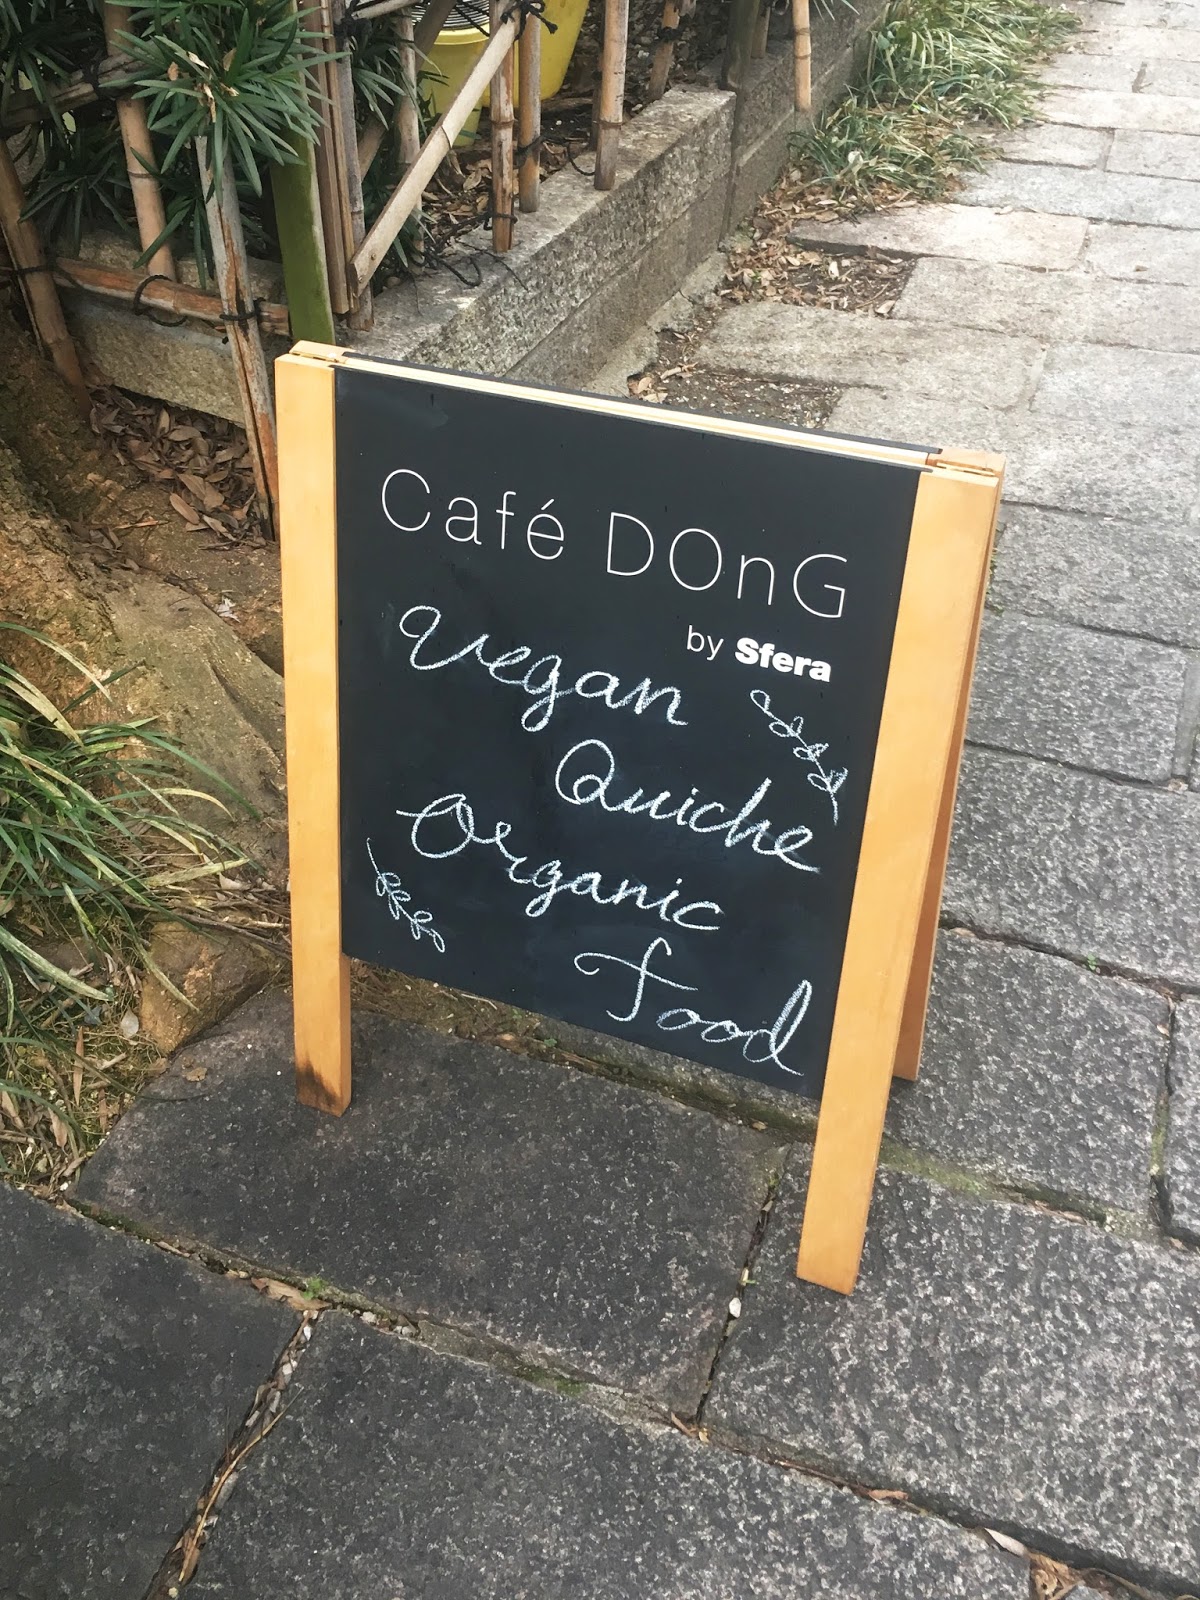 Café DOnG
by Sfera
Vegan
Quiche
Organic
food